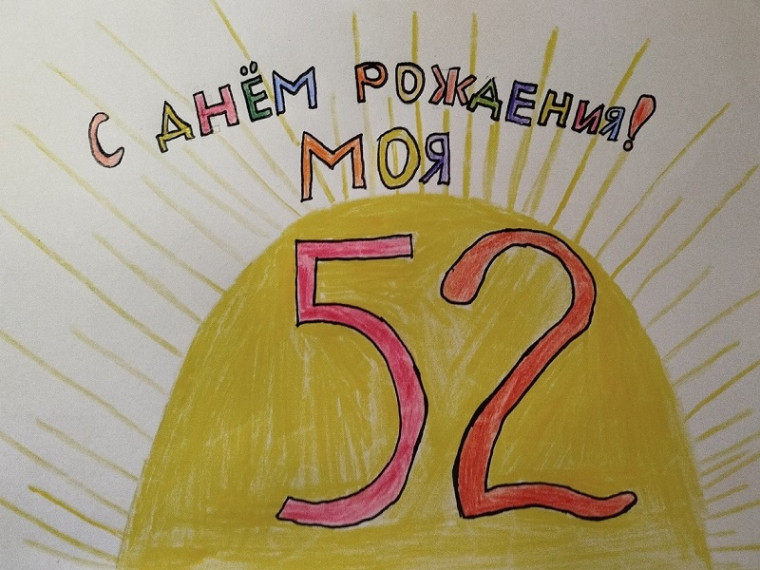 С ДНЁМ РОЖДЕНИЯ!
МОЯ
52